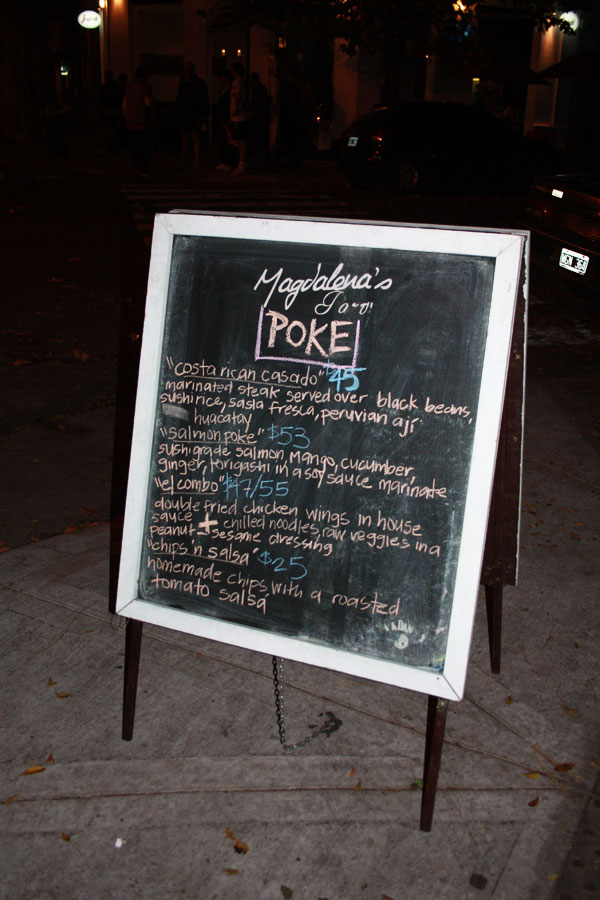 Magdalena's
POKE
"costa rican casado" 45
marinated steak served over black beans,
sushi rice, salsa fresca, peruvian aji
huacatay
"salmon poke" $53
sushi grade salmon, mango, cucumber,
ginger, torigashi in a soy sauce marinate
"el combo" $47/55
double fried chicken wings in house
sauce + chilled noodles, raw veggies in a
peanut-sesame dressing
"chips 'n salsa" $25
homemade chips with a roasted
tomato salsa